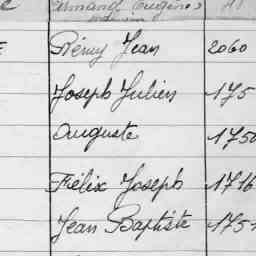 Armand Eugène
Rémy Jean 2060
Joseph Julien 175
Auguste 1750
Félix Joseph 1716
Jean Baptiste 1751